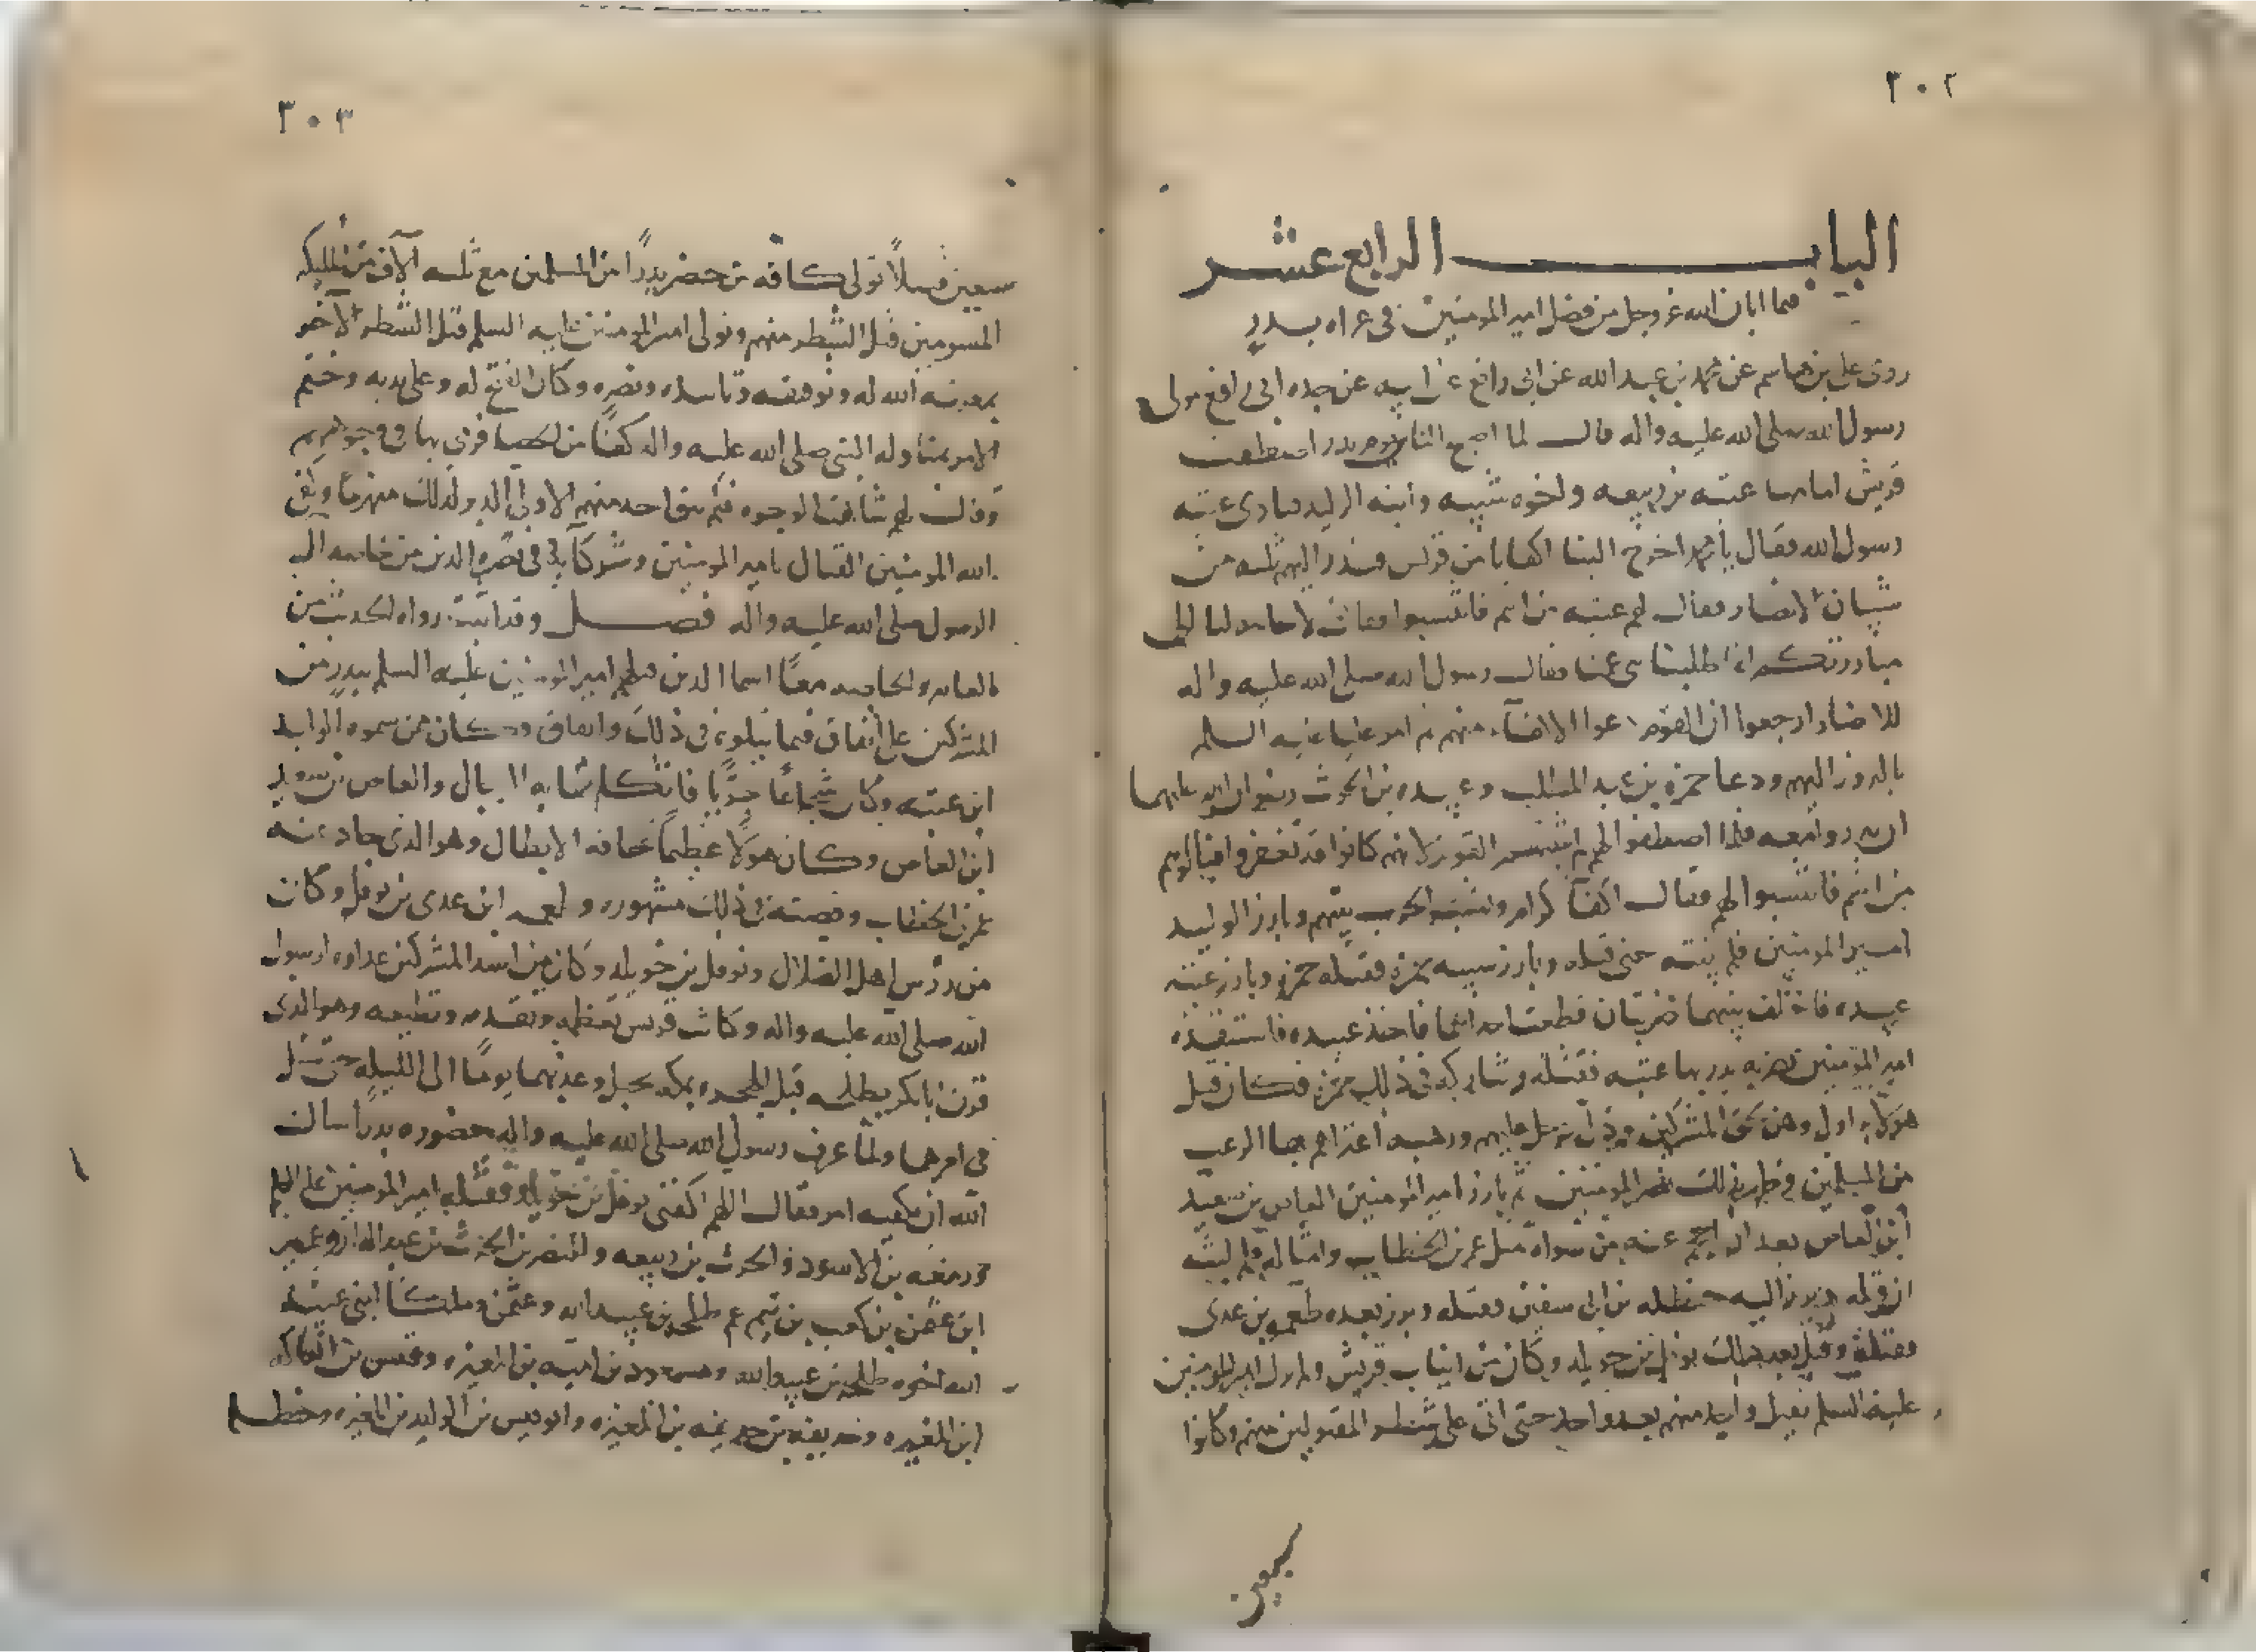 ٣٠٢
الباب الرابع عشر
مما ابان الله عز وجل من فضل امير المومنين في غزاه بدر
روى علي بن هاشم عن محمد بن عبد الله عن ابي رافع عن ابيه عن جده ابي رافع مولى
رسول الله صلى الله عليه واله قال لما اصبح الناس يوم بدر اصطفت
قريش امامها عتبه بن ربيعه واخوه شيبه وابنه الوليد فنادى عتبه
رسول الله فقال يا محمد اخرج الينا اكفانا من قريش فبدر اليهم ثلثه من
شبان الانصار فقال لهم عتبه من انتم فانتسبوا فقال لا حاجه لنا الى
مبارزتكم انما طلبنا بني عمنا فقال رسول الله صلى الله عليه واله
للانصار ارجعوا ان القوم دعوا الاكفاء منهم ثم امر عليا عليه السلم
بالبروز اليهم ودعا حمزه بن عبد المطلب وعبيده بن الحرث رضوان الله عليهما
ان يبرزوا معه فلما اصطفوا لهم لم يثبتهم القوم لانهم كانوا قد تغفروا فسالوهم
من انتم فانتسبوا لهم فقال اكفآ كرام ونشبت الحرب بينهم وبارز الوليد
امير المومنين فلم يلبثه حتى قتله وبارز شيبه حمزه فقتله حمزه وبارز عتبه
عبيده فاختلف بينهما ضربتان قطعت احداهما فخذ عبيده فاستنقذه
امير المومنين بضربه بدر بها عتبه فقتله وشاركه في ذلك حمزه فكان قتل
هولاء اول وهن لحق المشركين وذل دخل عليهم ورهبه اعتراهم بها الرعب
من المسلمين وظهر بذلك نصر المومنين ثم بارز امير المومنين العاص بن سعيد
ابن العاص بعد ان احجم عنه من سواه مثل عمر بن الخطاب وامثاله فلم يلبثه
ان قتله وبرز اليه حنظله بن ابي سفين فقتله وبرز بعده طعيمه بن عدي
فقتله وقتل بعد ذلك نوفل بن خويلد وكان من شياطين قريش ولم يزل امير المومنين
عليه السلم يقتل واحد منهم بعد واحد حتى اتى على شطر المقتولين منهم وكانوا
سبعين
٣٠٣
سبعين قتيلاً تولى كافه من حضر بدراً من المسلمين مع ثلثه آلاف من المليكه
المسومين قتل الشطر منهم وتولى امير المومنين عليه السلم قتل الشطر الآخر
بمعونه الله له وتوفيقه وتاييده ونصره وكان الفتح له وعلى يديه وختم
الامر بمناوله النبي صلى الله عليه واله كفاً من الحصا فرمى بها في وجوههم
وقال لهم شاهت الوجوه فلم يبق احد منهم الا ولى الدبر لذلك منهزماً وكفى
الله المومنين القتال بامير المومنين وشركآيه في نصره الدين من خاصه ال
الرسول صلى الله عليه واله فصل وقد اثبت رواه الحديث من
العامه والخاصه معاً اسما الذين قتلهم امير المومنين عليه السلم ببدر من
المشركين على اتفاق فيما نقلوه في ذلك واتفاق وكان ممن سموه الوليد
ابن عتبه وكان شجاعاً جريّاً فاتكا تهابه الرجال والعاص بن سعيد
ابن العاص وكان هولاً عظيماً تخافه الابطال وهو الذي حاد عنه
عمر بن الخطاب وقصته في ذلك مشهوره وطعيمه ابن عدي بن نوفل وكان
من رؤس اهل الضلال ونوفل بن خويلد وكان من اشد المشركين عداوه لرسول
الله صلى الله عليه واله وكانت قريش تعظمه وتقدمه وتطيعه وهو الذي
قرن بابي بكر بطلحه قبل الهجره بمكه بحبل وعذبهما يوماً الى الليله حتى سئل
في امرهما ولما عرف رسول الله صلى الله عليه واله حضوره بدراً سال
الله ان يكفيه امره فقال اللهم اكفني نوفل بن خويلد فقتله امير المومنين عليه السلم
وزمعه بن الاسود والحرث بن زمعه والنضر بن الحرث بن عبد الدار وعمير
ابن عثمن بن كعب بن تيم عم طلحه بن عبيد الله وعثمن ومالكاً ابني عبيد
الله اخوه طلحه بن عبيد الله ومسعود بن اميه بن المغيره وقيس بن الفاكه
ابن المغيره وحذيفه بن حذيفه بن المغيره وابو قيس بن الوليد بن المغيره وحنظله